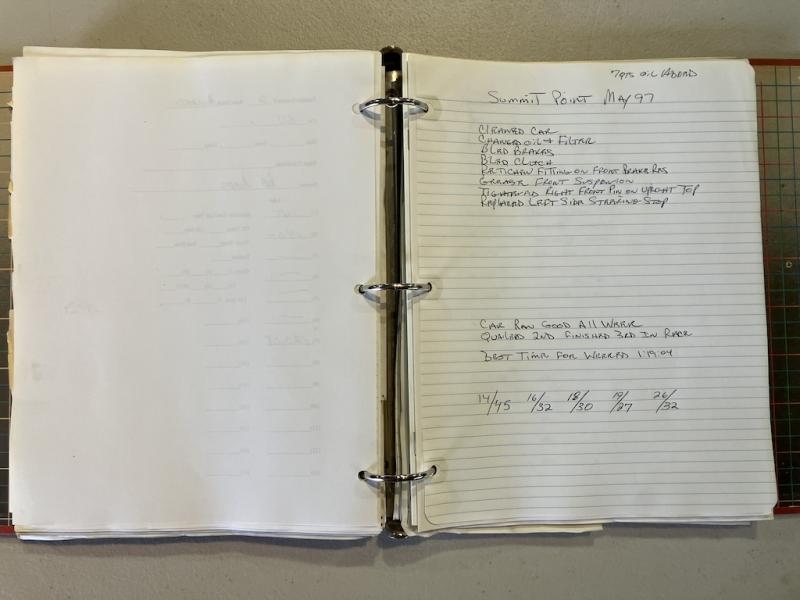 7 QTS OIL ADDED
SUMMIT POINT MAY 97
CLEANED CAR
CHANGED OIL + FILTER
BLED BRAKES
BLED CLUTCH
FITTING ON FRONT BRAKE RES
GREASE FRONT SUSPENSION
TIGHTENED RIGHT FRONT PIN ON UPRIGHT TOP
REPLACED LEFT SIDE STEARING STOP
CAR RAN GOOD ALL WEEK
QUALIED 2ND FINISHED 3RD IN RACE
BEST TIME FOR WEEKEND 1:19:04
14/45 16/32 18/30 19/27 26/32